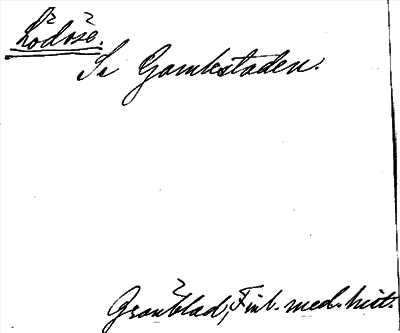 Lödöse.
Se Gamlestaden.
Granblad, Finl. med. hist.